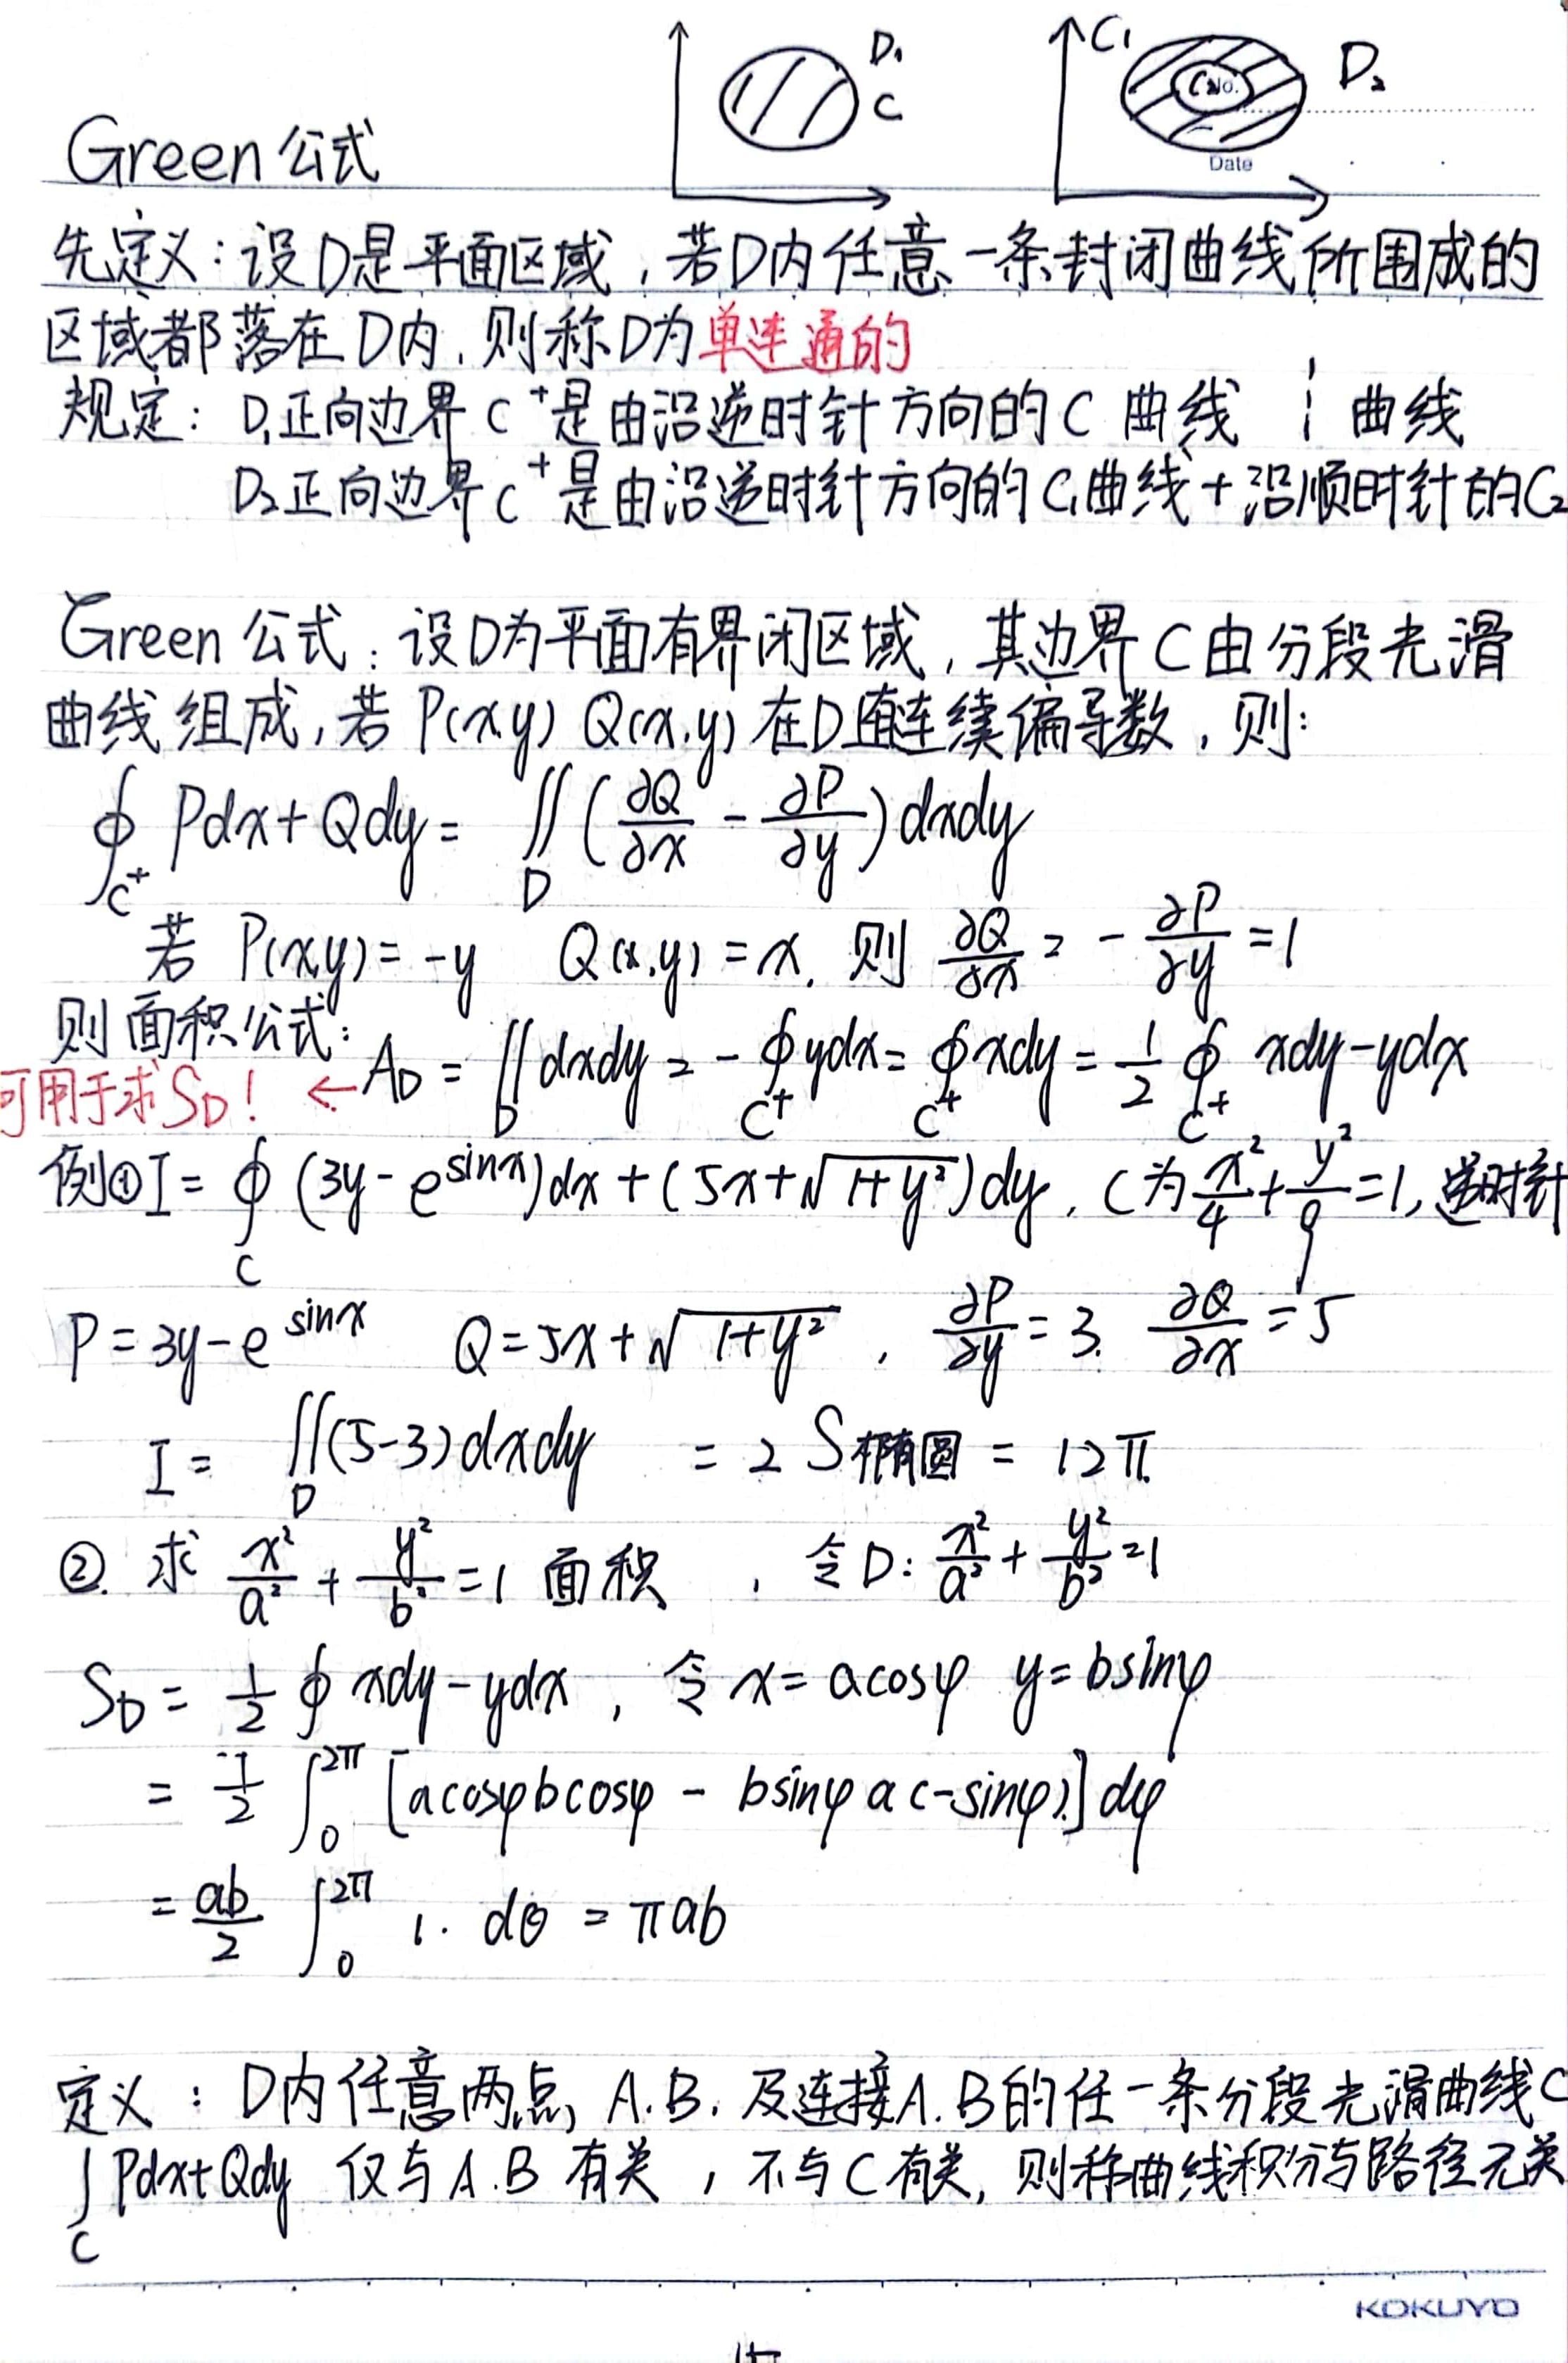 D₁
C
C₁
C₂
No.
D₂
Date
Green公式
先定义：设D是平面区域，若D内任意一条封闭曲线所围成的
区域都落在D内，则称D为单连通的
规定：D₁正向边界C⁺是由沿逆时针方向的C曲线 曲线
D₂正向边界C⁺是由沿逆时针方向的C₁曲线+沿顺时针的C₂
Green公式：设D为平面有界闭区域，其边界C由分段光滑
曲线组成，若P(x,y) Q(x,y)在D连续偏导数，则：
∮_{C⁺} Pdx+Qdy = ∬_D (∂Q/∂x - ∂P/∂y)dxdy
若 P(x,y)=-y Q(x,y)=x, 则 ∂Q/∂x = -∂P/∂y =1
则面积公式：
可用于求S_D! ← A_D = ∬_D dxdy = -∮_{C⁺} ydx = ∮_{C⁺} xdy = 1/2 ∮_{C⁺} xdy-ydx
例① I = ∮_C (3y-e^{sinx})dx+(5x+√(1+y²))dy, C为x²/4+y²/9=1, 逆时针
P=3y-e^{sinx} Q=5x+√(1+y²), ∂P/∂y=3. ∂Q/∂x=5
I = ∬_D (5-3)dxdy = 2S椭圆 = 12π
②. 求 x²/a²+y²/b²=1 面积, 令D: x²/a²+y²/b²=1
S_D = 1/2 ∮ xdy-ydx, 令 x=acosφ y=bsinφ
= 1/2 ∫₀^{2π} [acosφbcosφ - bsinφa(-sinφ)]dφ
= ab/2 ∫₀^{2π} 1· dθ = πab
定义：D内任意两点, A.B. 及连接A.B的任一条分段光滑曲线C
∫_C Pdx+Qdy 仅与A.B有关，不与C有关，则称曲线积分与路径无关
KOKUYO